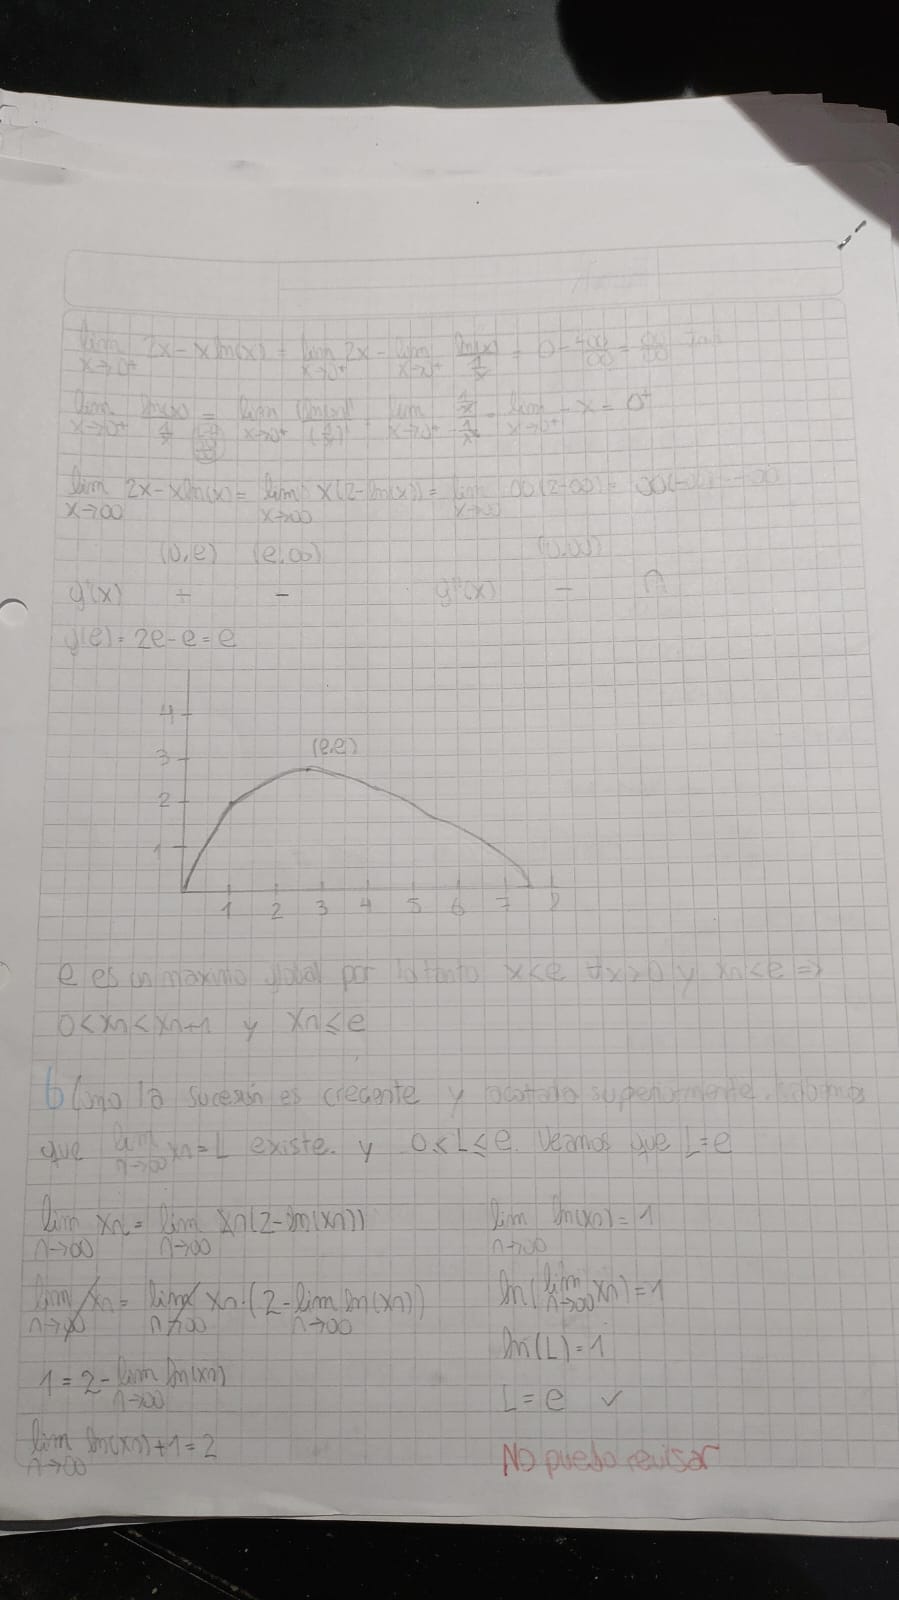 lim x→0+ 2x - x ln(x) = lim x→0+ 2x - lim x→0+ ln(x)/(1/x) = 0 -
lim x→0+ ln(x)/(1/x) = lim x→0+ (ln(x))'/(1/x)' = lim x→0+ = lim x→0+ - x = 0+
lim x→∞ 2x - x ln(x) = lim x→∞ x(2 - ln(x)) = lim x→∞ ∞(2-∞) =
(0,e) (e,∞) (0,∞)
y'(x) + - y''(x) - ∩
y(e) = 2e - e = e
4
3
(e,e)
2
1
1 2 3 4 5 6 7 8
e es un maximo global por lo tanto x<e ∀x>0 y xn<e ⇒
0<xn<xn+1 y xn≤e
b Como la sucesión es creciente y acotada superiormente, sabemos
que lim n→∞ xn = L existe. y 0<L≤e. Veamos que L=e
lim n→∞ xn = lim n→∞ xn(2 - ln(xn))
lim n→∞ xn = lim n→∞ xn·(2 - lim n→∞ ln(xn))
1 = 2 - lim n→∞ ln(xn)
lim n→∞ ln(xn) + 1 = 2
lim n→∞ ln(xn) = 1
ln(lim n→∞ xn) = 1
ln(L) = 1
L = e ✓
No puedo revisar